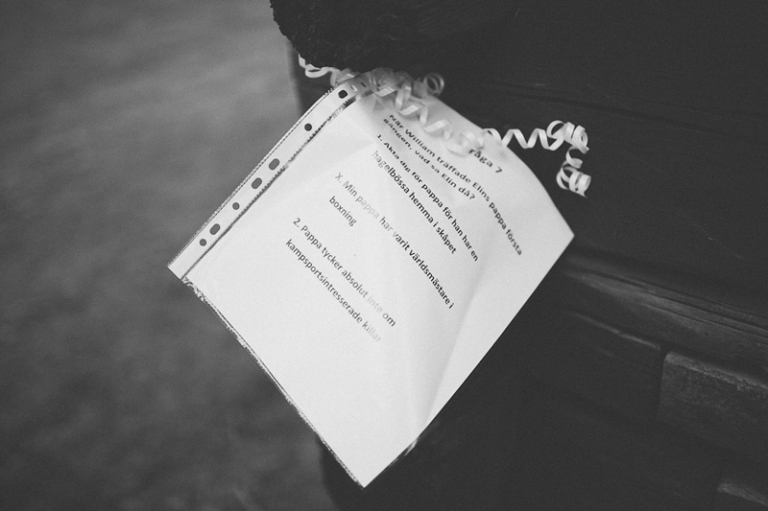 Fråga 7
När William träffade Elins pappa första
gången, vad sa Elin då?
1. Akta dig för pappa för han har en
hagelbössa hemma i skåpet
X. Min pappa har varit världsmästare i
boxning
2. Pappa tycker absolut inte om
kampsportsintresserade killar